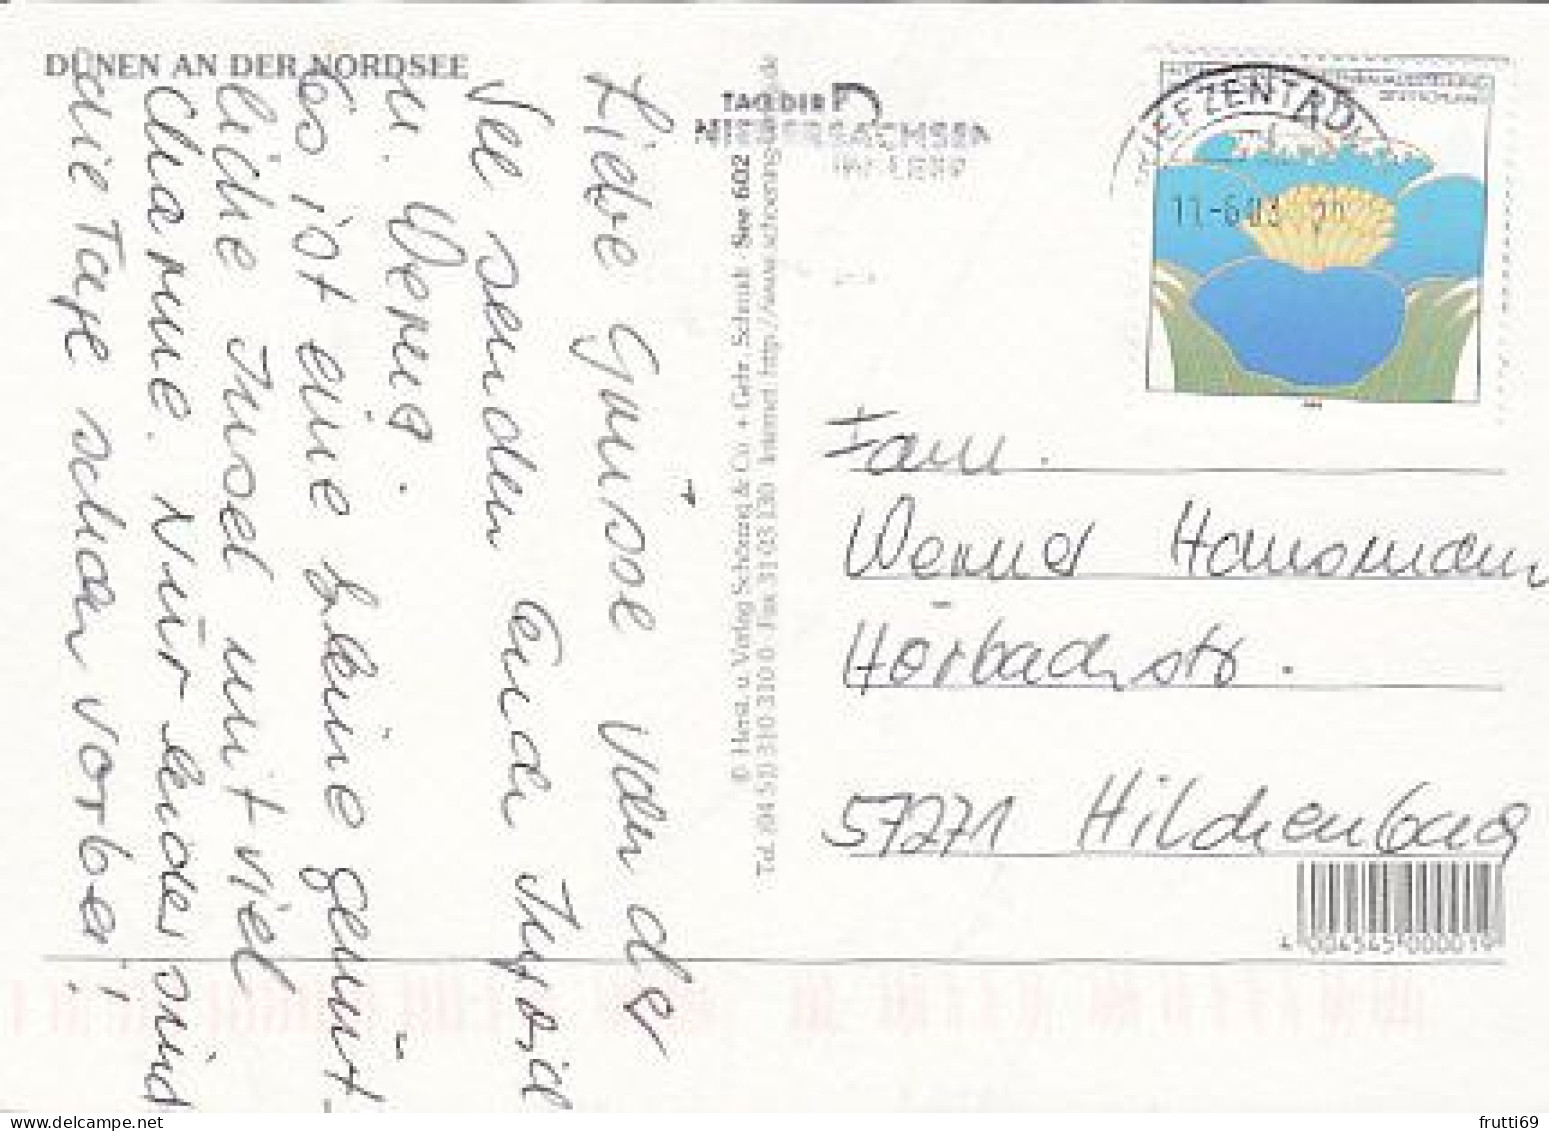 DÜNEN AN DER NORDSEE
Liebe Grüsse von der
See senden Euch
u. Werner.
Es ist eine kleine gemüt-
liche Insel mit viel
Charme. Nur leider sind
die Tage schon vorbei!
© Herst. u. Verlag Schöning & Co. + Gebr. Schmidt · See 602
Tel. (04 51) 310 310 0 · Fax 31 03 130 Internet: http://www.schoening-verlag.de
TAG DER
NIEDERSACHSEN
BRIEFZENTRUM
11.-6.03
Fam.
Werner Hansmann
Hörbachstr.
57271 Hilchenbach
4 004545 000019
frutti69